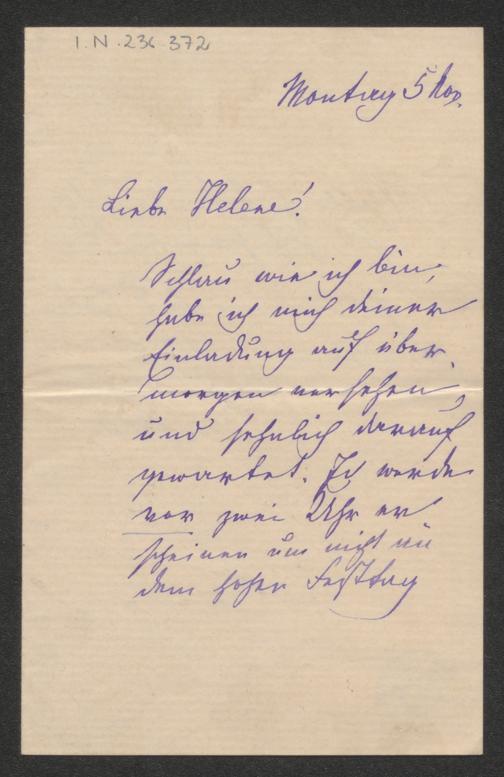 I.N. 236.372
Montag 5 Nov.
Liebe Helene!
Schlau wie ich bin,
habe ich mich deiner
Einladung auf über
morgen versehen,
und sehnlich darauf
gewartet. Ich werde
vor zwei Uhr er
scheinen um nicht an
dem hohen Festtag